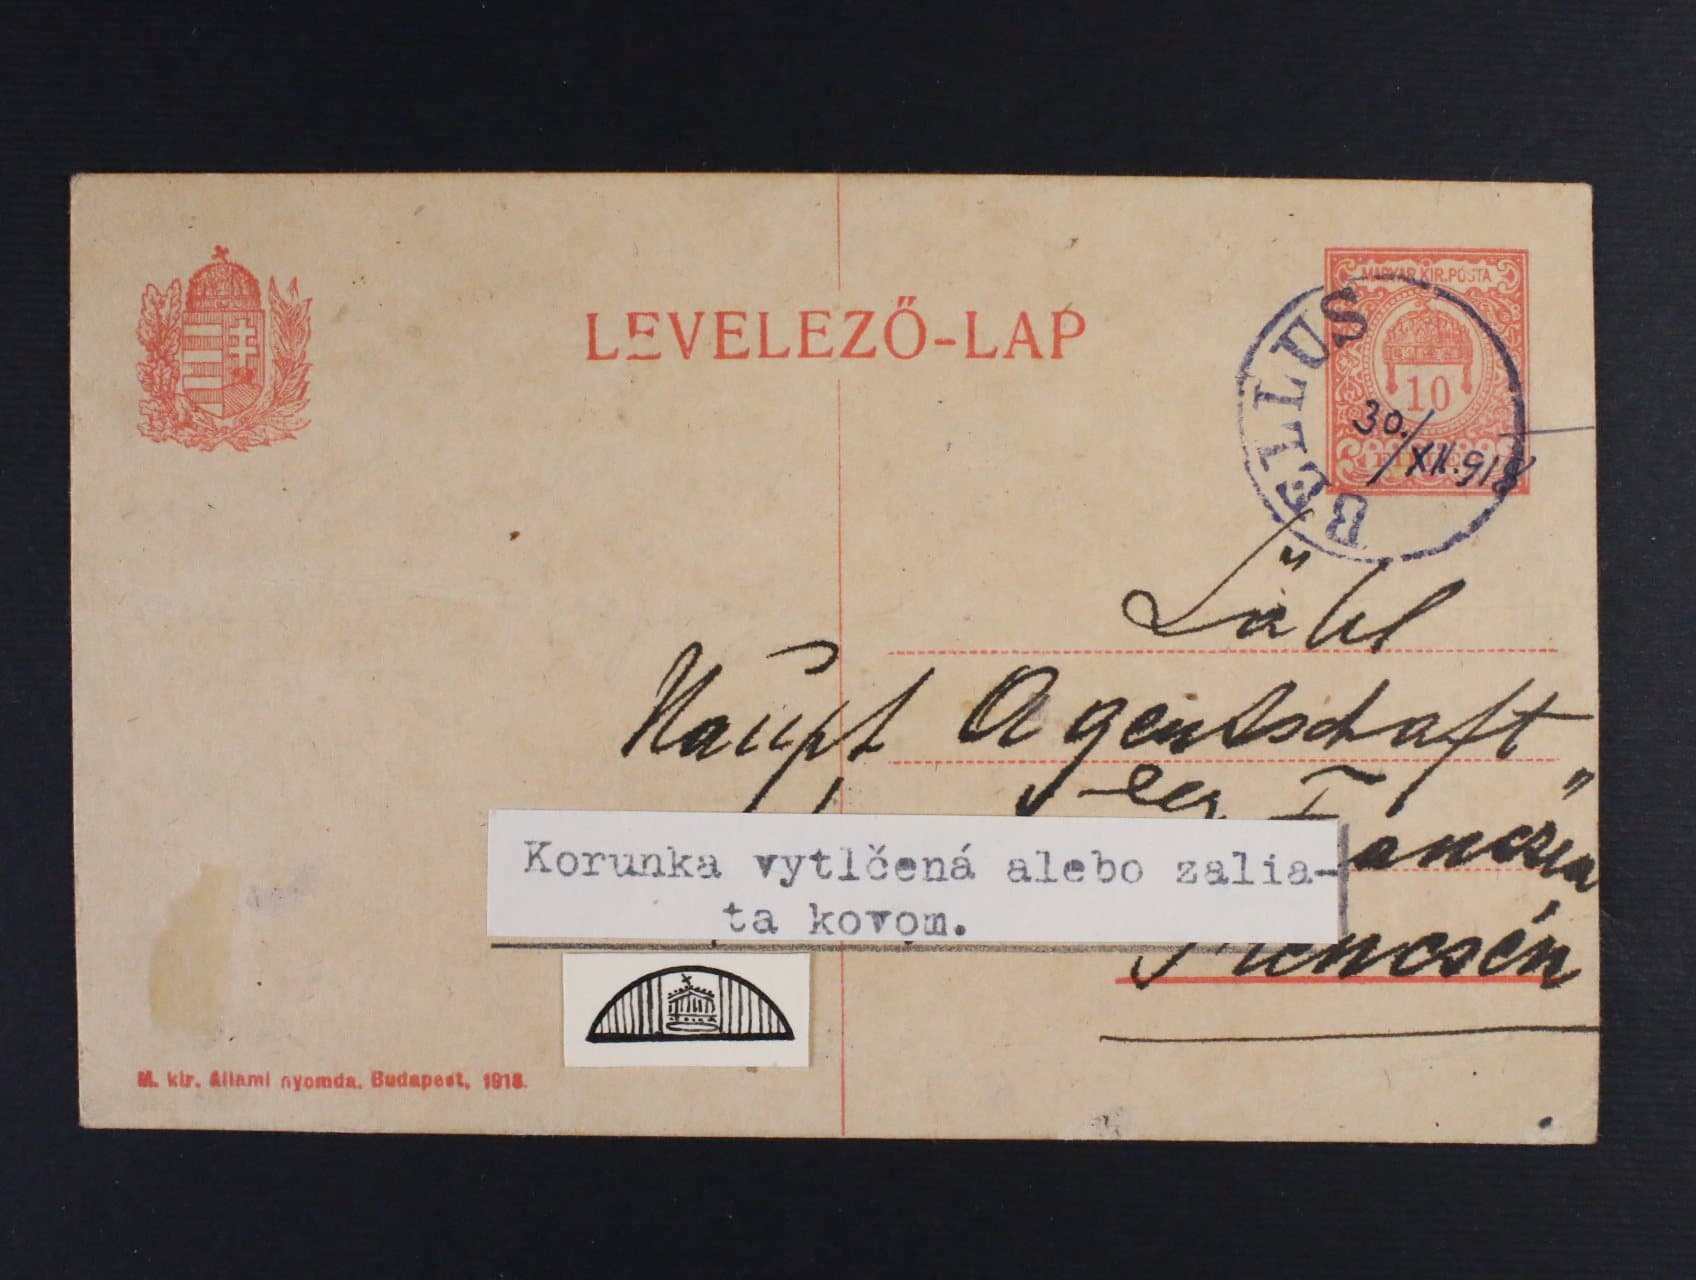 LEVELEZŐ-LAP
MAGYAR KIR. POSTA
10
FILLÉR
BELLUS
30./XII.918
Löbl
Haupt Agentschaft
der "Foncsiea"
Korunka vytlčená alebo zalia-
ta kovom.
Trencsén
M. kir. állami nyomda. Budapest, 1918.